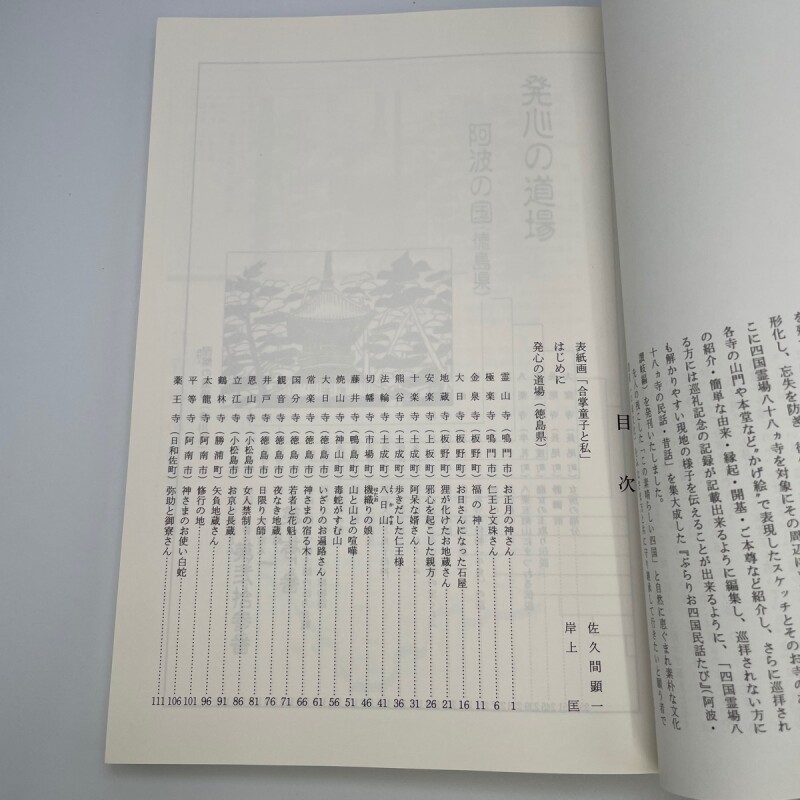 形化し、忘失を防ぎ、
こに四国霊場八十八ヵ寺を対象にその周辺に
各寺の山門や本堂など〝かげ絵〟で表現したスケッチとそのお寺の
の紹介・簡単な由来・縁起・開基・ご本尊など紹介し、さらに巡拝され
る方には巡礼記念の記録が記載出来るように編集し、巡拝されない方に
も解かりやすい現地の様子を伝えることが出来るように、「四国霊場八
十八ヵ寺の民話・昔話」を集大成した『ぶらりお四国民話たび』（阿波・
讃岐編）を発刊いたしました。
目次
表紙画「合掌童子と私」 佐久間顕一
はじめに 岸上匡
発心の道場（徳島県）
霊山寺（鳴門市）お正月の神さん…1
極楽寺（鳴門市）仁王と文珠さん…6
金泉寺（板野町）福の神…11
大日寺（板野町）お日さんになった石屋…16
地蔵寺（板野町）狸が化けたお地蔵さん…21
安楽寺（上板町）邪心を起こした親方…26
十楽寺（土成町）阿呆な婿さん…31
熊谷寺（土成町）歩きだした仁王様…36
法輪寺（土成町）八日山…41
切幡寺（市場町）機織りの娘…46
藤井寺（鴨島町）山と山との喧嘩…51
焼山寺（神山町）毒蛇がすむ山…56
大日寺（徳島市）いざりのお遍路さん…61
常楽寺（徳島市）神さまの宿る木…66
国分寺（徳島市）若者と花魁…71
観音寺（徳島市）夜なき地蔵…76
井戸寺（徳島市）日限り大師…81
恩山寺（小松島市）女人禁制…86
立江寺（小松島市）お京と長蔵…91
鶴林寺（勝浦町）矢負地蔵さん…96
太龍寺（阿南市）修行の地…101
平等寺（阿南市）神さまのお使い白蛇…106
薬王寺（日和佐町）弥助と御寮さん…111